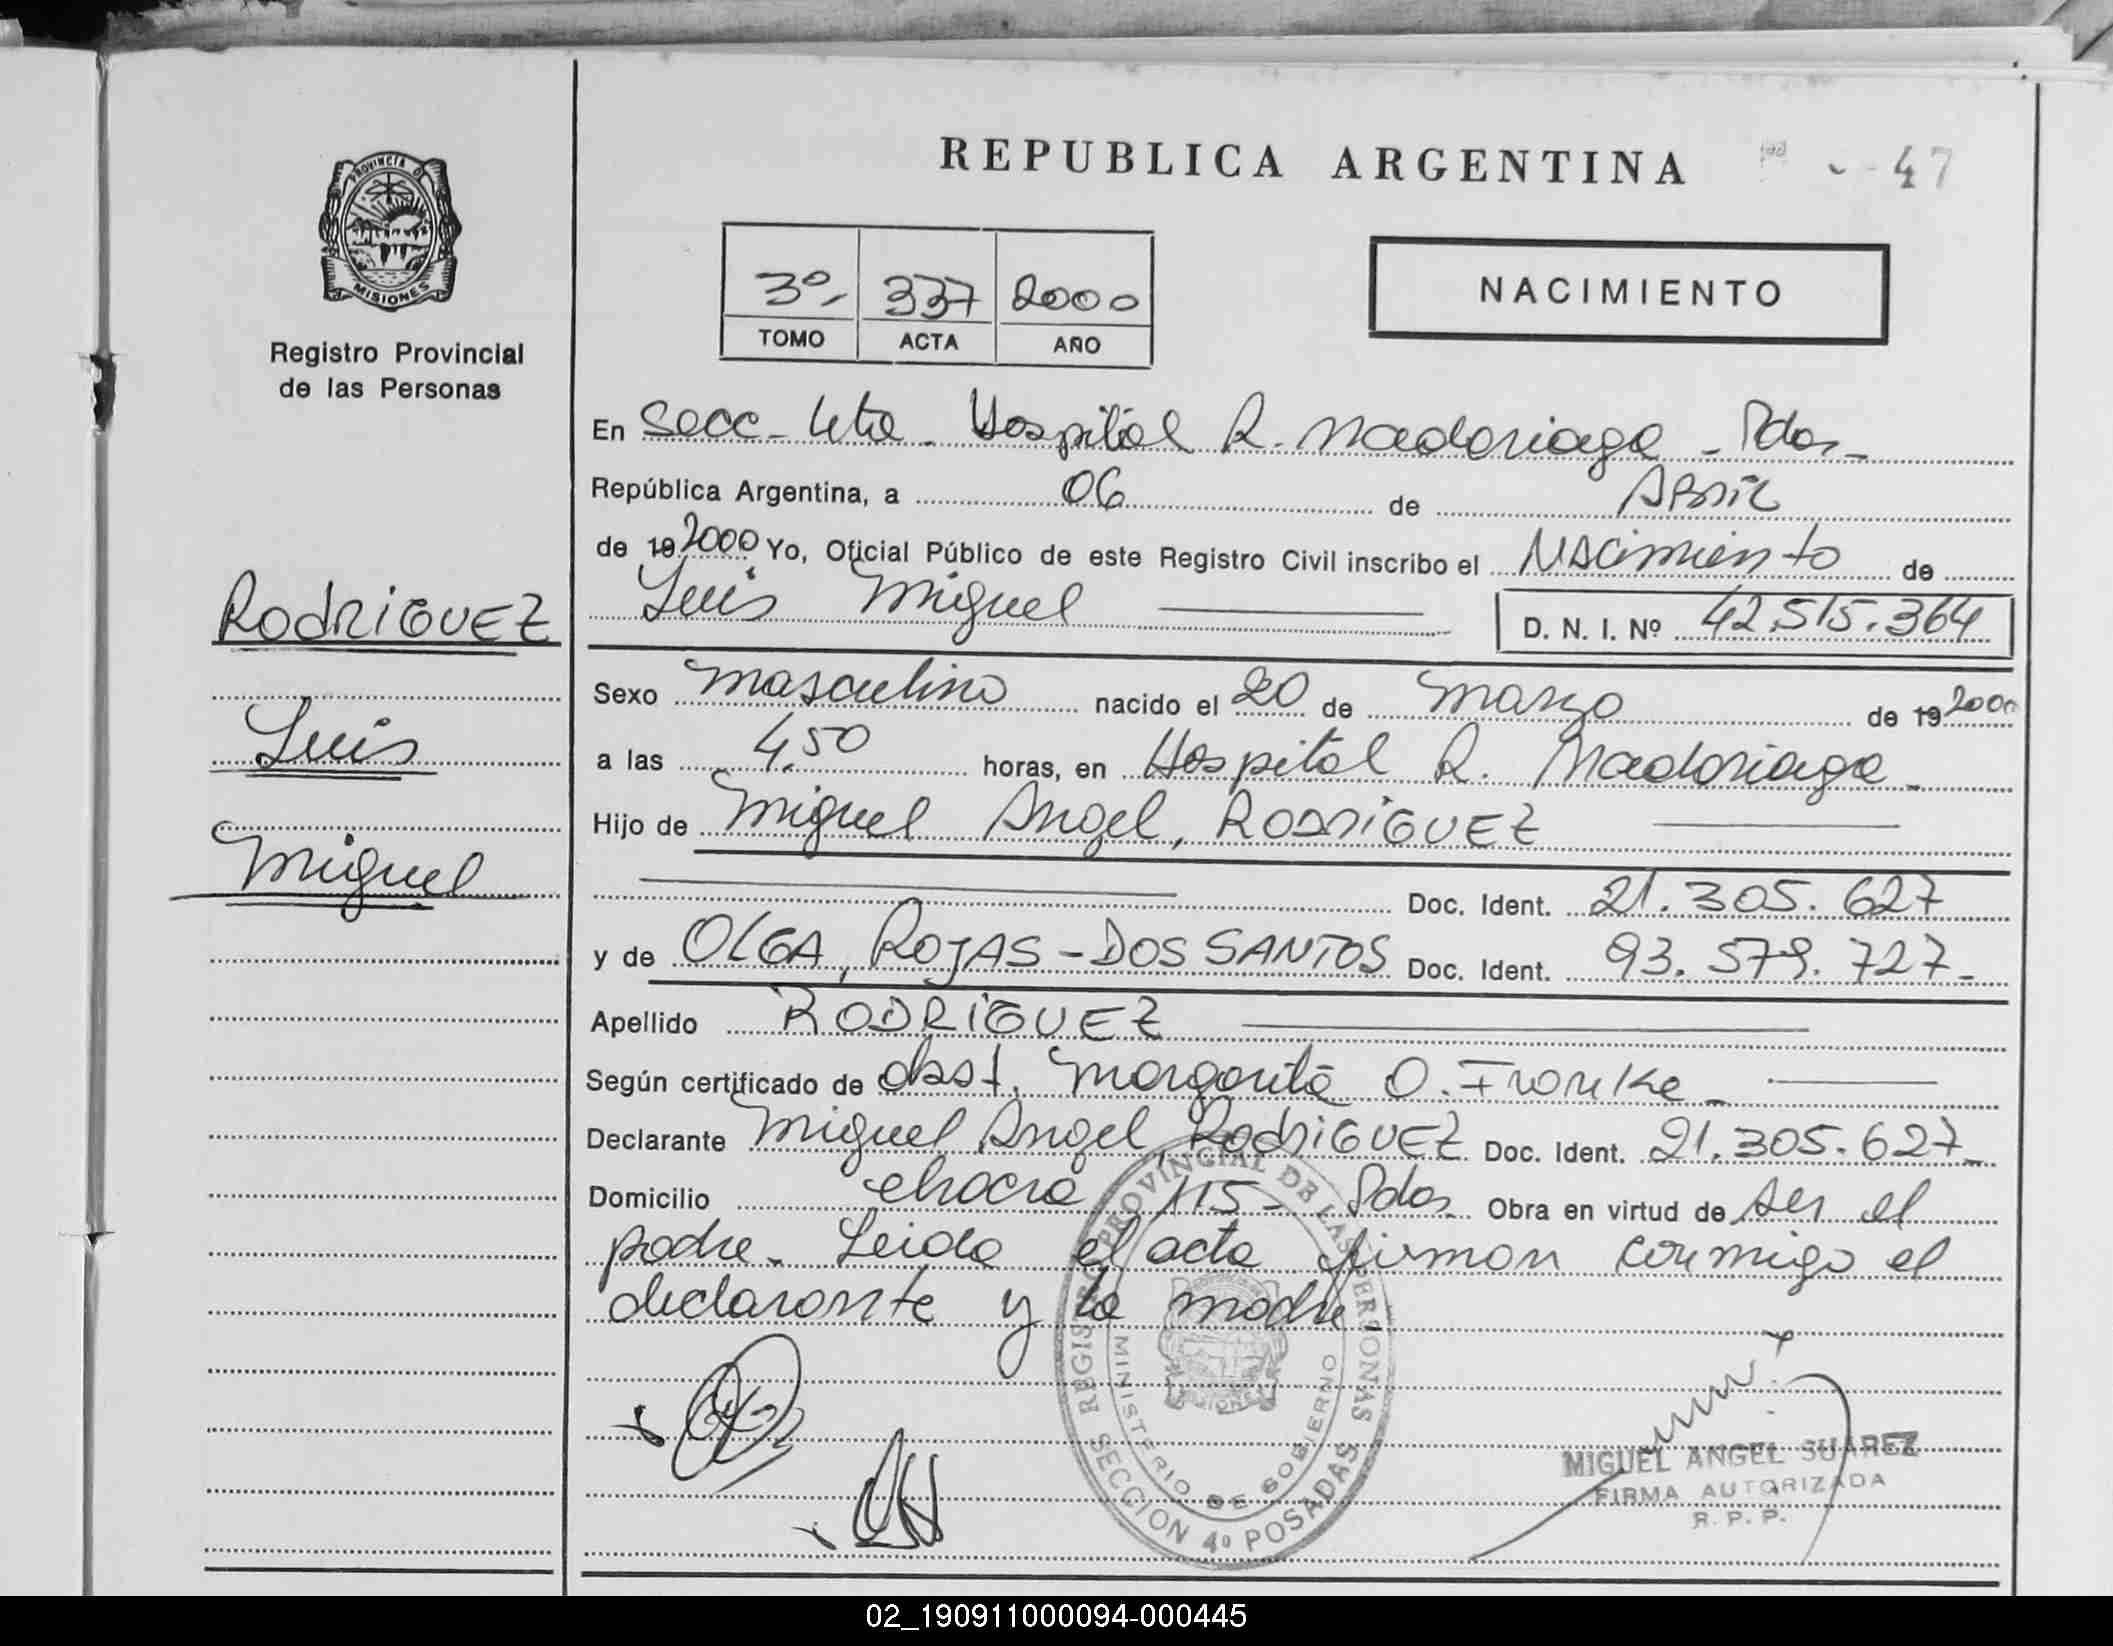 REPUBLICA ARGENTINA
47
PROVINCIA D
MISIONES
Registro Provincial
de las Personas
3º 337 2000
TOMO ACTA AÑO
NACIMIENTO
En Secc. 4ta. Hospital R. Madariaga - Pdas -
República Argentina, a 06 de ABRIL
de 19 2000 Yo, Oficial Público de este Registro Civil inscribo el Nacimiento de
Luis Miguel D. N. I. Nº 42.515.364
RODRIGUEZ
Luis
Miguel
Sexo masculino nacido el 20 de marzo de 19 2000
a las 4,50 horas, en Hospital R. Madariaga -
Hijo de Miguel Angel, RODRIGUEZ
Doc. Ident. 21.305.627
y de OLGA, ROJAS - DOS SANTOS Doc. Ident. 93.579.727 -
Apellido RODRIGUEZ
Según certificado de obst. Margarita O. Fronke -
Declarante Miguel Angel, RODRIGUEZ Doc. Ident. 21.305.627 -
Domicilio chacra 115 - Pdas. Obra en virtud de ser el
padre - Leida el acta firman conmigo el
declarante y la madre
REGISTRO PROVINCIAL DE LAS PERSONAS
MINISTERIO DE GOBIERNO
SECCION 4º POSADAS
MIGUEL ANGEL SUAREZ
FIRMA AUTORIZADA
R. P. P.
02_190911000094-000445